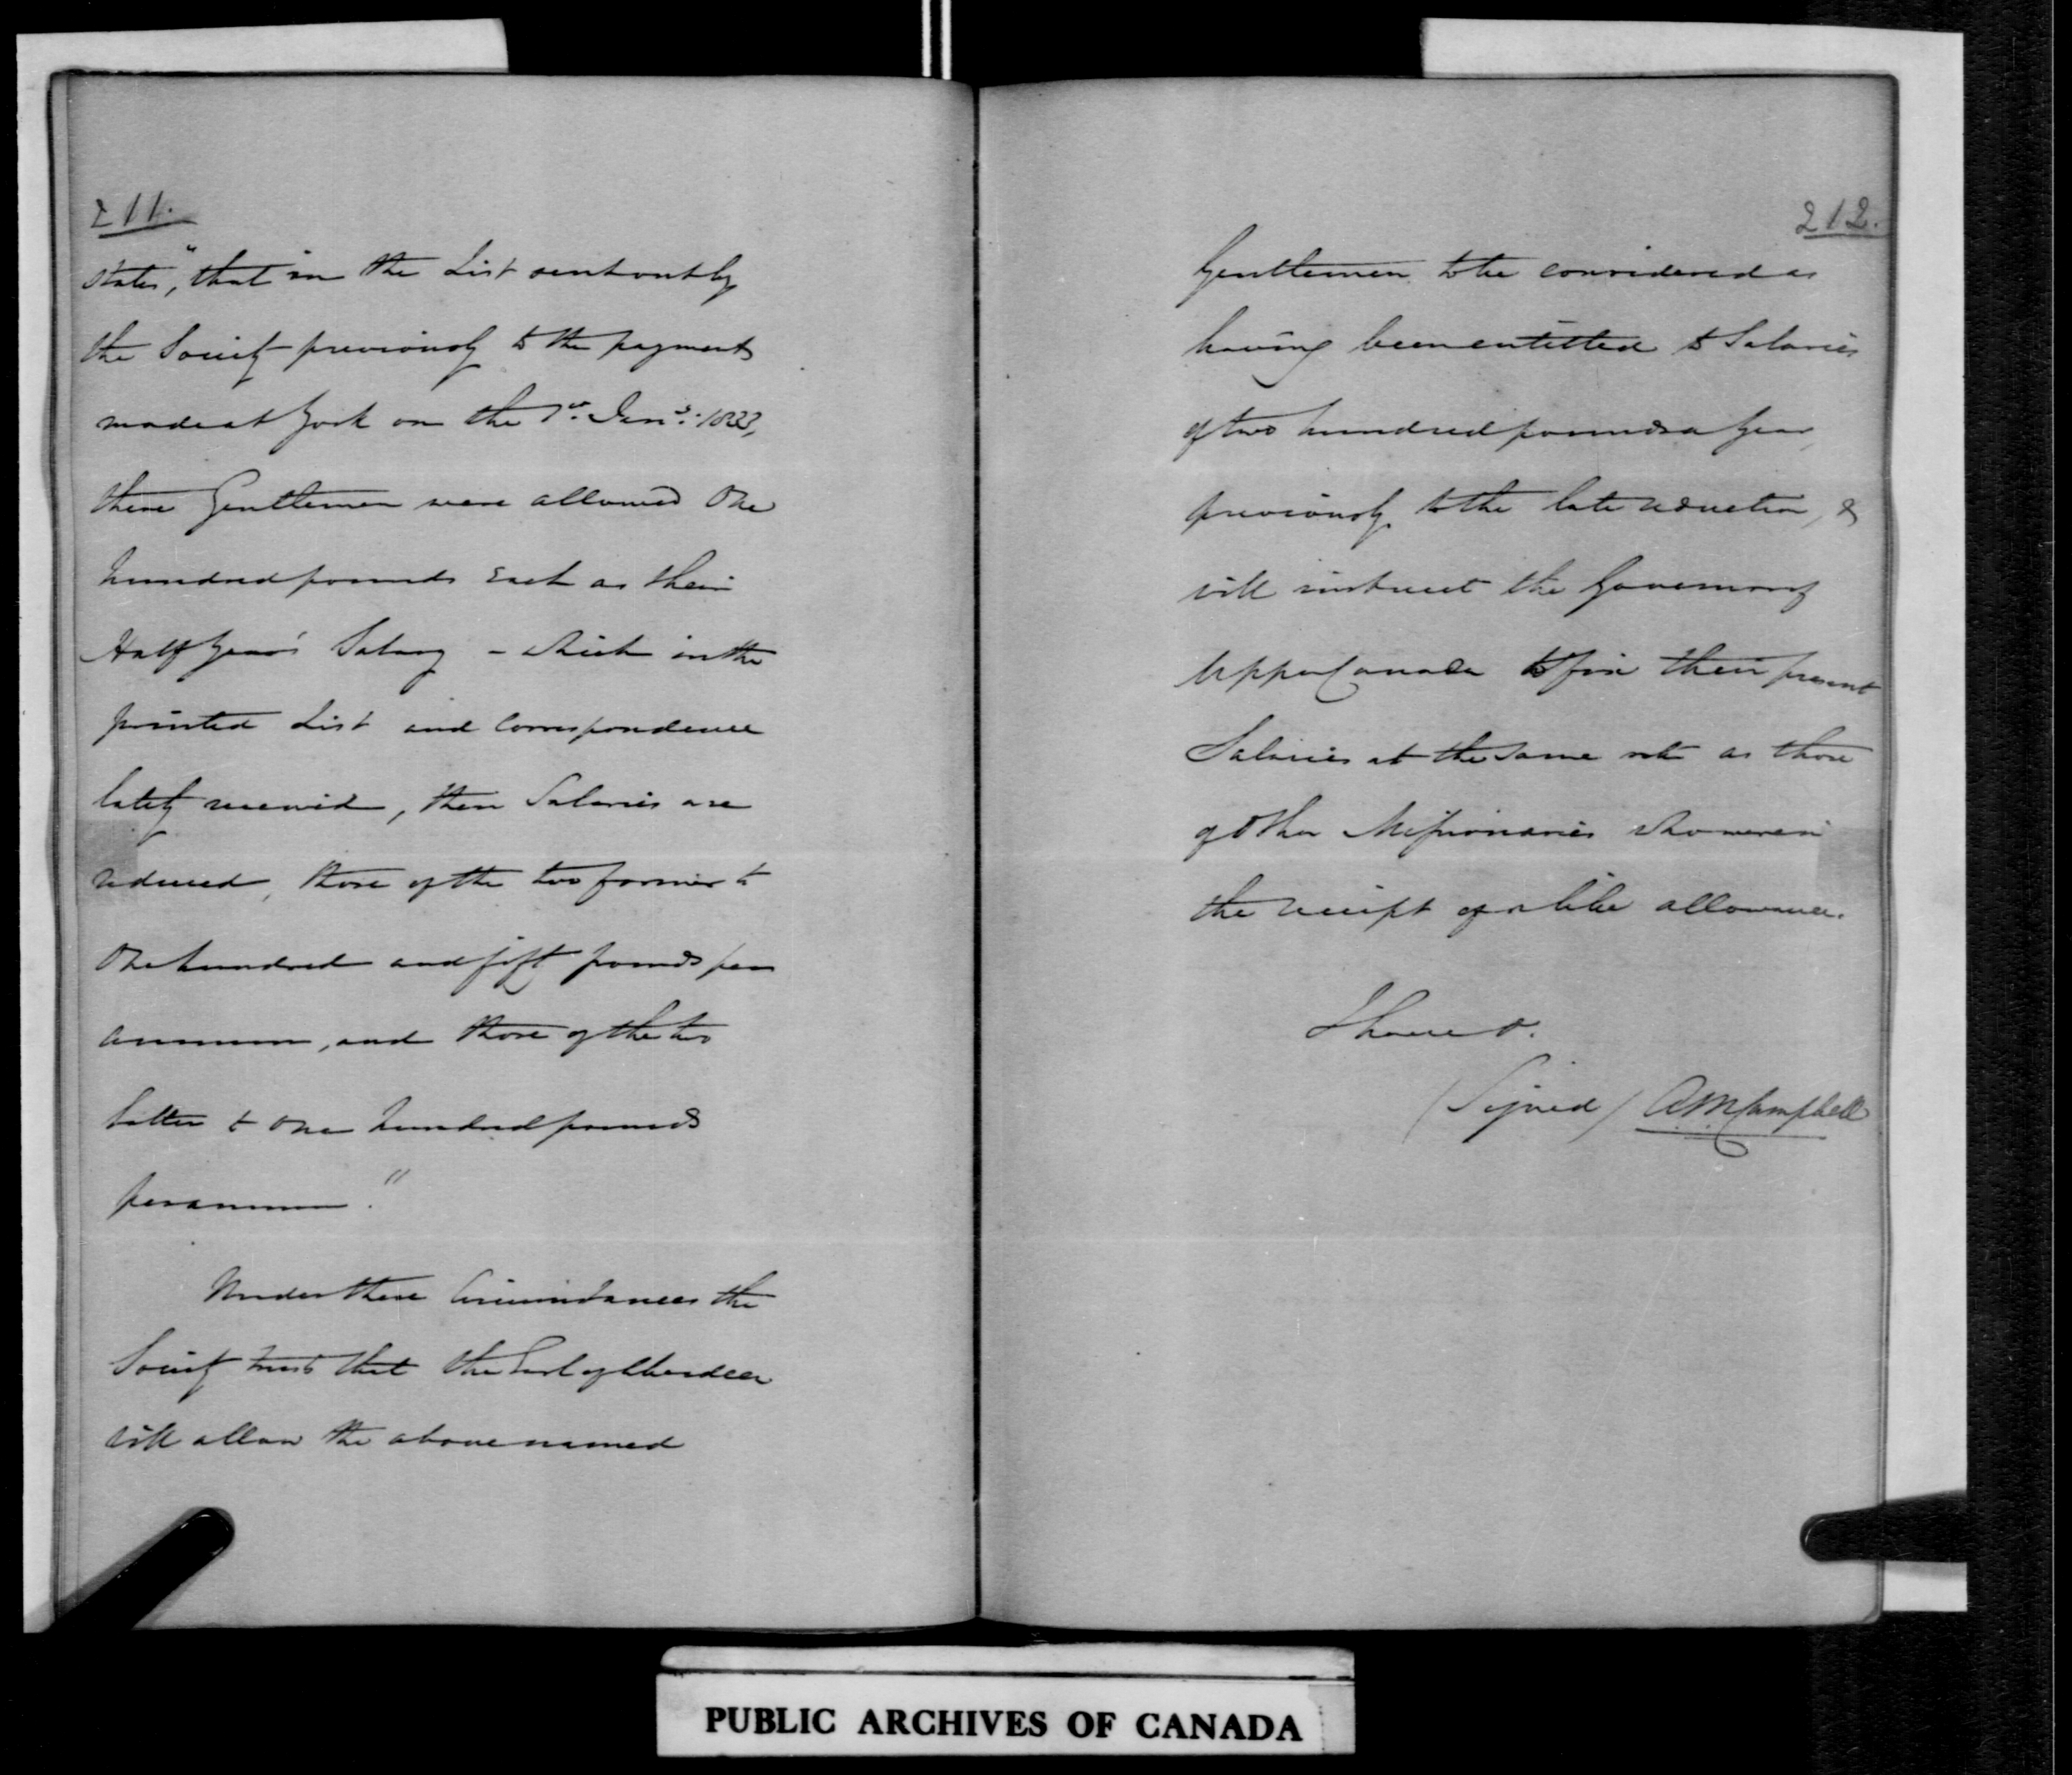 211.
states, "that in the List sent out by
the Society previously to the payments
made at York on the 1st Jany: 1833,
these Gentlemen were allowed One
hundred pounds each as their
Half Year's Salary - which in the
printed List and Correspondence
lately received, these Salaries are
reduced, those of the two former to
One hundred and fifty pounds per
annum, and those of the two
latter to one hundred pounds
per annum."
Under these Circumstances the
Society trusts that the Earl of Aberdeen
will allow the above named
212.
Gentlemen to be considered as
having been entitled to Salaries
of two hundred pounds a Year,
previously to the late reduction, &
will instruct the Governor of
Upper Canada to fix their present
Salaries at the same rate as those
of other Missionaries who were in
the receipt of a like allowance.
I have &.
(Signed) A M Campbell
PUBLIC ARCHIVES OF CANADA